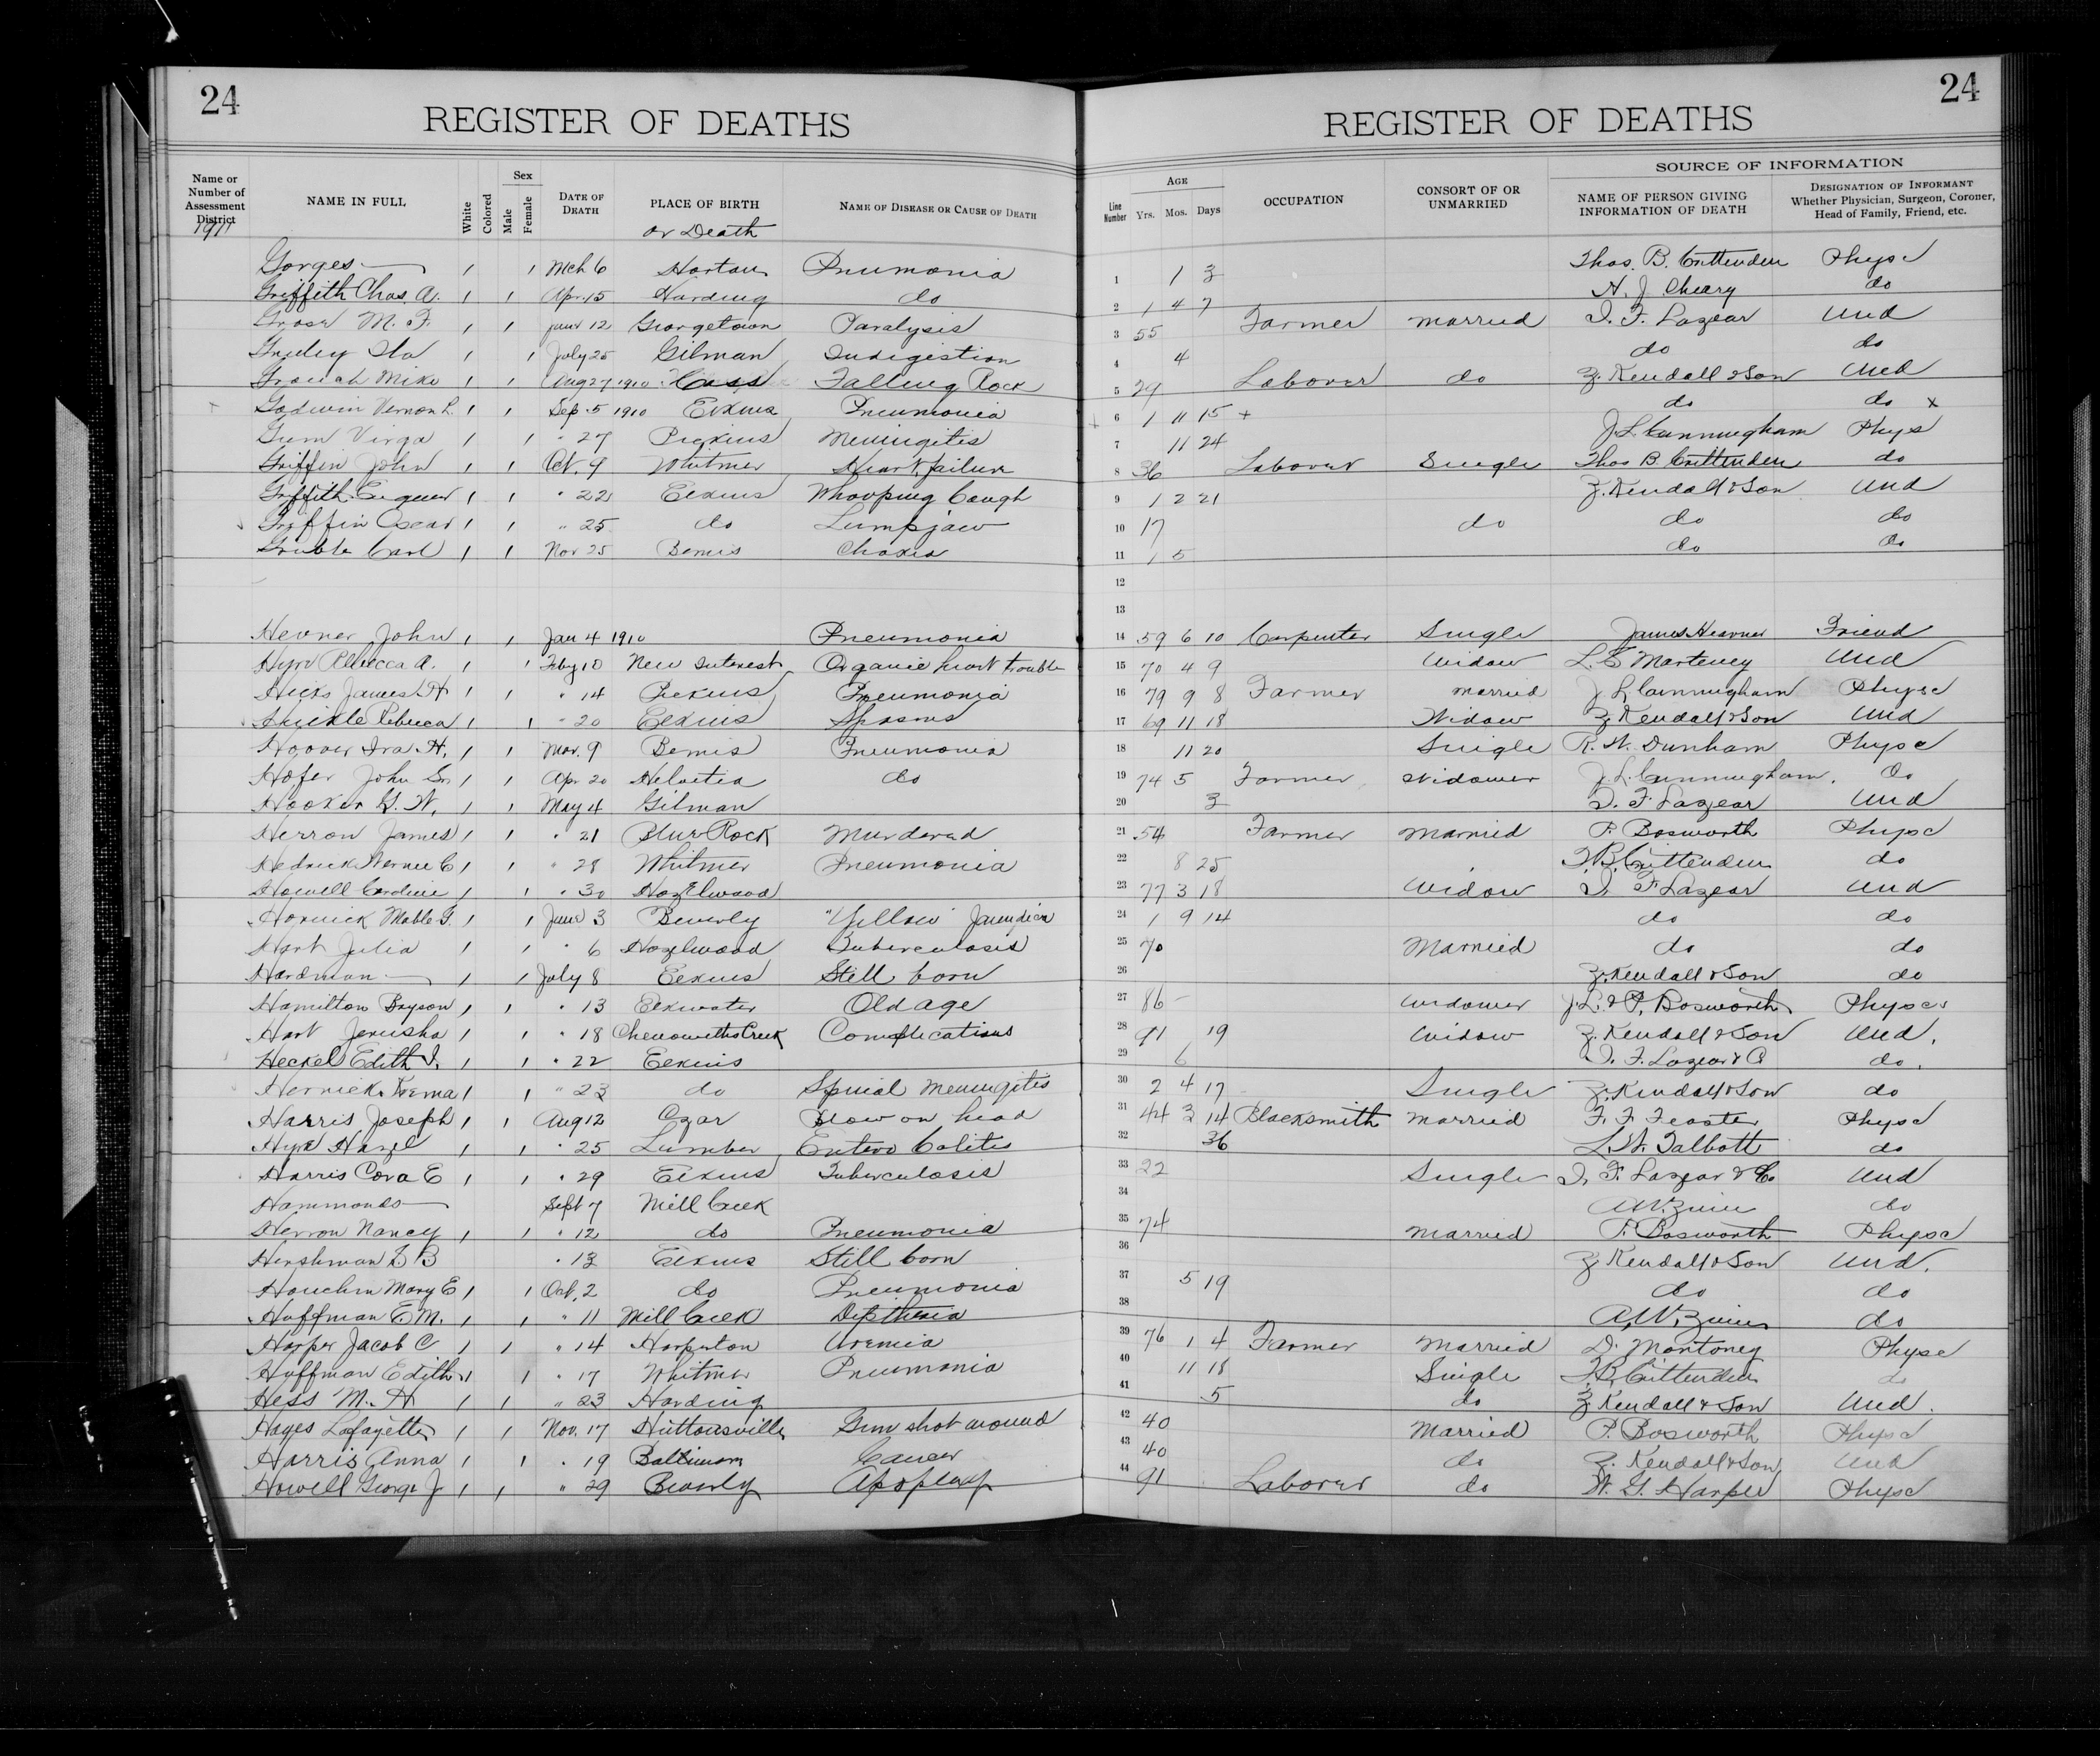 24
REGISTER OF DEATHS
Name or Number of Assessment District
NAME IN FULL
White
Colored
Sex
Male
Female
DATE OF DEATH
PLACE OF BIRTH
or Death
NAME OF DISEASE OR CAUSE OF DEATH
1911
Gorges 1 1 Mch 6 Horton Pnumonia
Griffith Chas. A. 1 1 Apr. 15 Harding do
Grose M. F. 1 1 June 12 Georgetown Paralysis
Ila 1 1 July 25 Gilman Indigestion
Mike 1 1 Aug 27 1910 Cass Falling Rock
Godwin Vernon L. 1 1 Sep 5 1910 Elkins Pneumonia
Gum Virga 1 1 " 27 Pickens Meningitis
Griffin John 1 1 Oct. 9 Whitmer Heart failure
Griffith 1 1 " 22 Elkins Whooping Cough
Griffin Oscar 1 1 " 25 do Lumpjaw
Gruble Carl 1 1 Nov 25 Bemis
Hevner John 1 1 Jan 4 1910 Pneumonia
Hyre Rebecca A. 1 1 Feby 10 New Interest Organic heart trouble
Hicks James H 1 1 " 14 Pickens Pneumonia
Rebecca 1 1 " 20 Elkins Spasms
Hoover Ira H. 1 1 Mar. 9 Bemis Pneumonia
Hofer John Sr. 1 1 Apr 20 Helvetia do
Hooker G. W. 1 1 May 4 Gilman
Herron James 1 1 " 21 Blue Rock Murdered
Hedrick Vernie C 1 1 " 28 Whitmer Pneumonia
Howell Caroline 1 1 " 30 Hazelwood
Hornick Mable G. 1 1 June 3 Beverly "Yellow" Jaundice
Hart Julia 1 1 " 6 Hazelwood Tuberculosis
Hardman 1 1 July 8 Elkins Still born
Hamilton Bryson 1 1 " 13 Elkwater Old age
Hart Jerusha 1 1 " 18 Chenowiths Creek Complications
Heckel Edith I. 1 1 " 22 Elkins
Hornick Verna 1 1 " 23 do Spinal Meningitis
Harris Joseph 1 1 Aug 12 Ozar Blow on head
Hyre Hazel 1 1 " 25 Lumber Entero Colitis
Harris Cora E 1 1 " 29 Elkins Tuberculosis
Hammonds Sept 7 Mill Creek
Herron Nancy 1 1 " 12 do Pneumonia
Hershman L B " 13 Elkins Still born
Houchin Mary E 1 1 Oct. 2 do Pneumonia
Huffman E. M. 1 1 " 11 Mill Creek Diptheria
Harper Jacob C 1 1 " 14 Harperton Uremia
Huffman Edith 1 1 " 17 Whitmer Pneumonia
Hess M. H 1 1 " 23 Harding
Hayes Lafayette 1 1 Nov. 17 Huttonsville Gun shot wound
Harris Anna 1 1 " 19 Baltimore Cancer
Howell George J 1 1 " 29 Beverly Apoplexy
24
REGISTER OF DEATHS
Line Number
AGE
Yrs. Mos. Days
OCCUPATION
CONSORT OF OR UNMARRIED
SOURCE OF INFORMATION
NAME OF PERSON GIVING INFORMATION OF DEATH
DESIGNATION OF INFORMANT
Whether Physician, Surgeon, Coroner, Head of Family, Friend, etc.
1 1 3 Thos. B. Crittenden Physc
2 1 4 7 H. J. Cheary do
3 55 Farmer Married I. F. Lazear Und
4 4 do do
5 29 Laborer do Z. Kendall & Son Und
6 1 11 15 + do do x
7 11 24 J. L. Cunningham Phys
8 36 Laborer Single Thos B. Crittenden do
9 1 2 21 Z. Kendall & Son Und
10 17 do do do
11 1 5 do do
12
13
14 59 6 10 Carpenter Single James Hevner Friend
15 70 4 9 Widow L. E Marteney Und
16 79 9 8 Farmer Married J L Cunningham Physc
17 69 11 18 Widow Z. Kendall & Son Und
18 11 20 Single R. W. Dunham Physc
19 74 5 Farmer Widower J. L. Cunningham. Do
20 3 I. F. Lazear Und
21 54 Farmer Married P. Bosworth Physc
22 8 25 T. B. Crittenden do
23 77 3 18 Widow I. F Lazear Und
24 1 9 14 do do
25 70 Married do do
26 Z. Kendall & Son do
27 86 - Widower J. L. & P. Bosworth Physc.
28 91 19 Widow Z. Kendall & Son Und.
29 6 I. F. Lazear & C do.
30 2 4 17 Single Z. Kendall & Son do
31 44 3 14 Blacksmith Married F. F. Feaster Physc
32 36 L. W. Talbott do
33 22 Single I. F. Lazear & Co Und
34 A W. Zinn do
35 74 Married P. Bosworth Physc
36 Z Kendall & Son Und.
37 5 19 do do
38 A. W. Zinn do
39 76 1 4 Farmer Married D. Montoney Physc
40 11 18 Single T. B. Crittenden do
41 5 do Z Kendall & Son Und.
42 40 Married P. Bosworth Physc
43 40 do Z. Kendall & Son Und
44 91 Laborer do W. G. Harper Physc